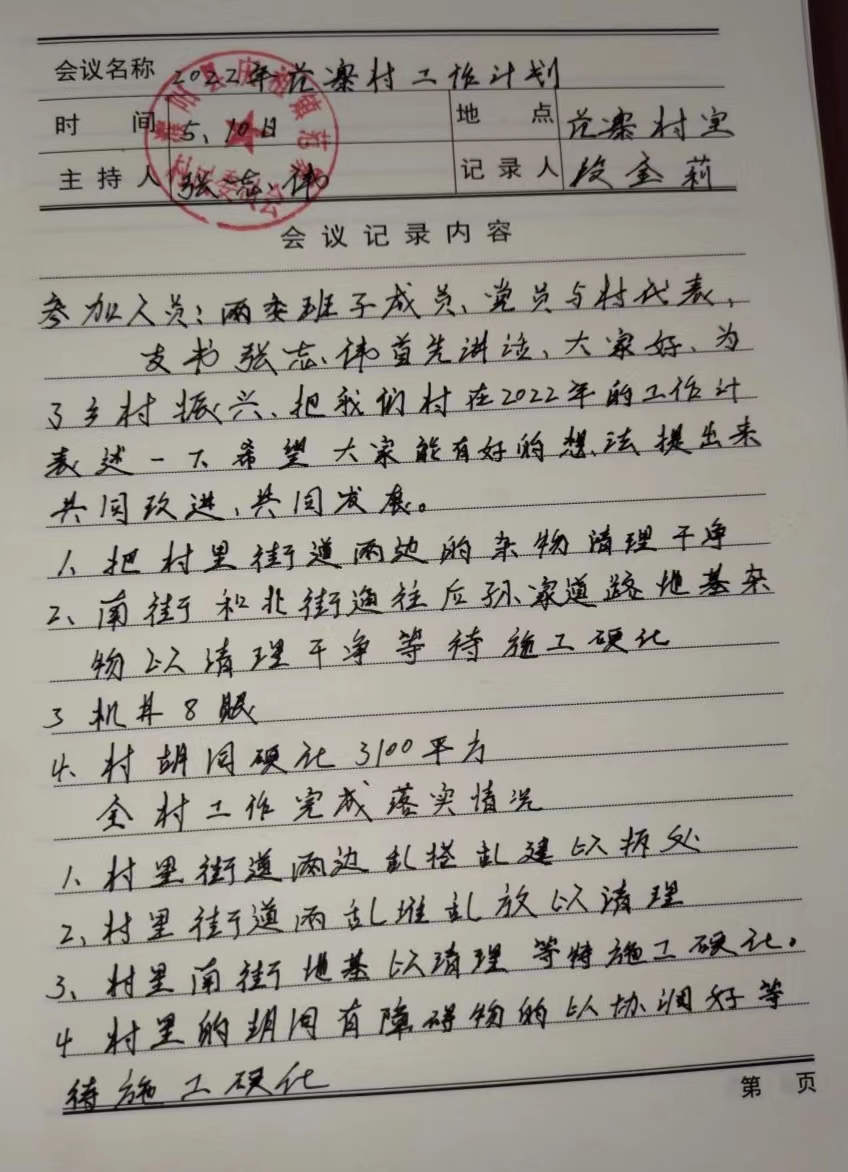 会议名称 2022年范寨村工作计划
时 间 5、10日 地 点 范寨村室
主持人 张志伟 记录人 段金莉
会议记录内容
参加人员：两委班子成员、党员与村代表，
支书张志伟首先讲话、大家好、为
了乡村振兴、把我们村在2022年的工作计
表述一下希望大家能有好的想法提出来
共同改进、共同发展。
1、把村里街道两边的杂物清理干净
2、南街和北街通往后孙家道路地基杂
物以清理干净等待施工硬化
3 机井8眼
4、村胡同硬化3100平方
全村工作完成落实情况
1、村里街道两边乱搭乱建以拆处
2、村里街道两乱堆乱放以清理
3、村里南街地基以清理等待施工硬化。
4 村里的胡同有障碍物的以协调好等
待施工硬化
第 页